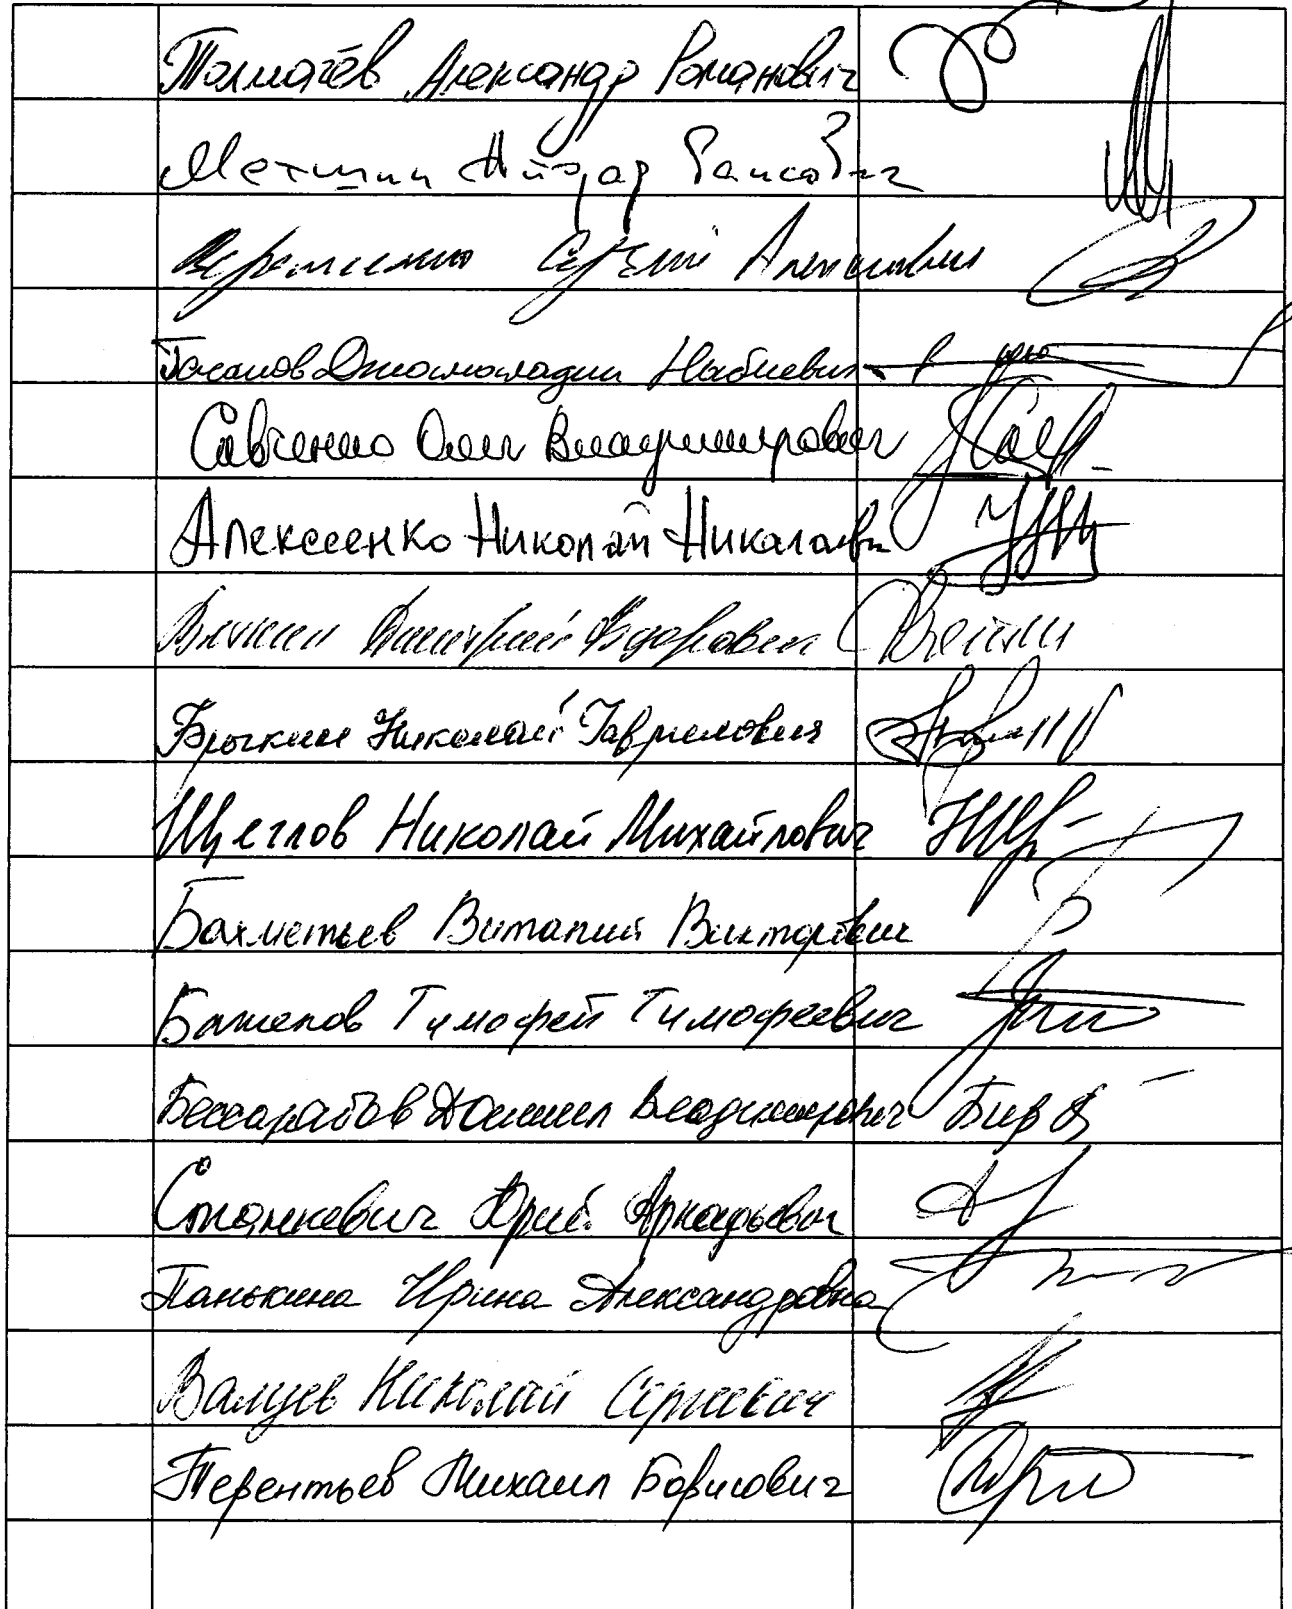 Толмачёв Александр Романович
Метшин Айдар Раисович
Вережченко Сергей Алексеевич
Гасанов Джамаладин Набиевич
Савченко Олег Владимирович
Алексеенко Николай Николаевич
Вяткин Дмитрий Фёдорович
Брыкин Николай Гаврилович
Щеглов Николай Михайлович
Бахметьев Виталий Викторович
Баженов Тимофей Тимофеевич
Бессарабов Даниил Владимирович
Станкевич Юрий Аркадьевич
Панькина Ирина Александровна
Валуев Николай Сергеевич
Терентьев Михаил Борисович